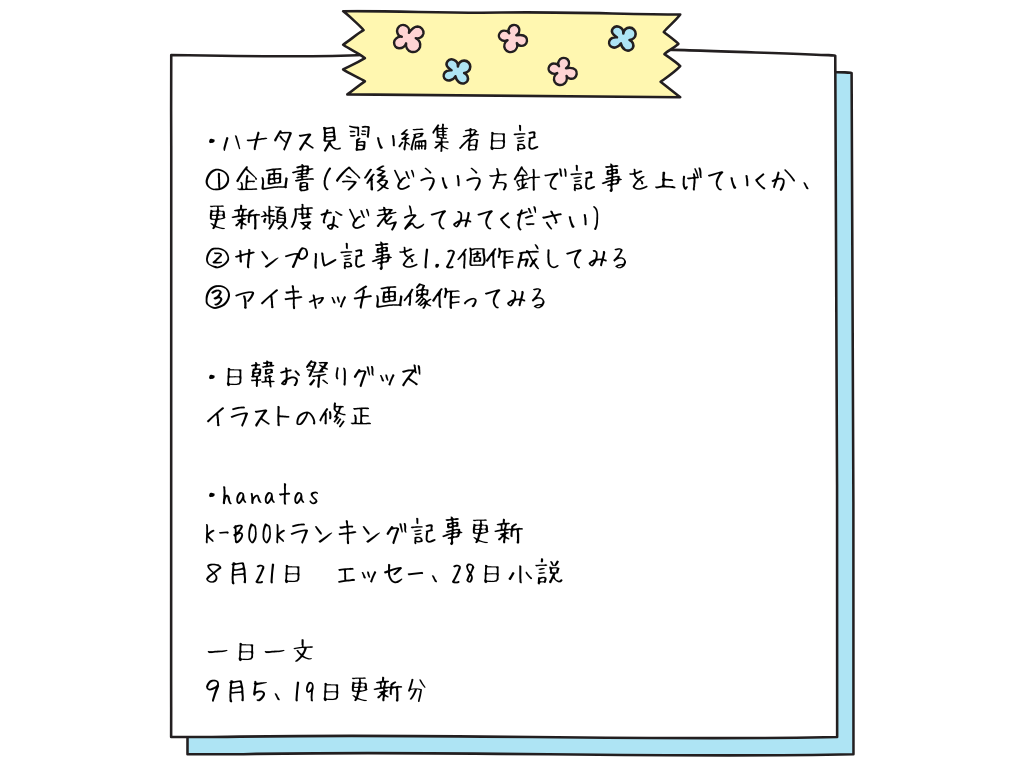 ・ハナタス見習い編集者日記
①企画書(今後どういう方針で記事を上げていくか、
更新頻度など考えてみてください)
②サンプル記事を1.2個作成してみる
③アイキャッチ画像作ってみる
・日韓お祭りグッズ
イラストの修正
・hanatas
K-BOOKランキング記事更新
8月21日　エッセー、28日小説
一日一文
9月5、19日更新分